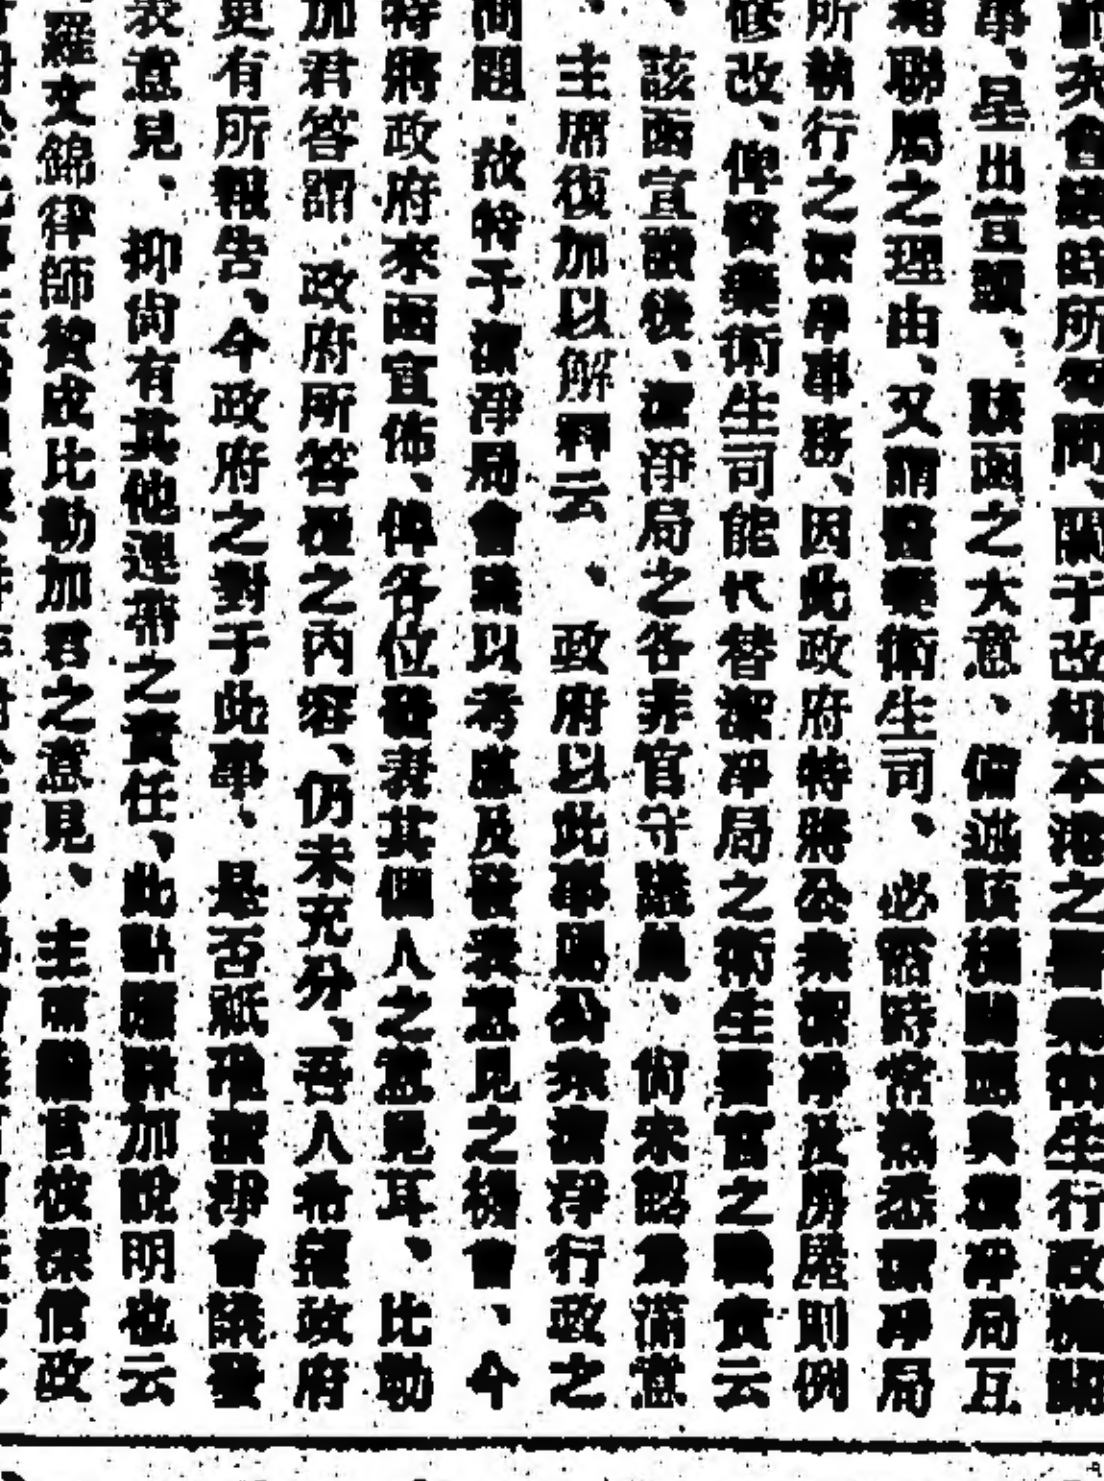 次會議時所質問、關于改組本港之醫藥衛生行政機關
事、呈出宣讀、該函之大意、備述該機關應與潔淨局互
相聯屬之理由、又謂醫藥衛生司、必需時常熟悉潔淨局
所執行之潔淨事務、因此政府特將公衆潔淨及房屋則例
修改、俾醫藥衛生司能代替潔淨局之衛生醫官之職責云
、該函宣讀後、潔淨局之各非官守議員、尚未認為滿意
、主席復加以解釋云、政府以此事屬公衆潔淨行政之
問題、故特于潔淨局會議以考慮及發表意見之機會、今
特將政府來函宣佈、俾各位發表其個人之意見耳、比勒
加君答謂、政府所答覆之內容、仍未充分、吾人希望政府
更有所報告、今政府之對于此事、是否祇確潔淨會議發
表意見、抑尚有其他連帶之責任、此點應詳加說明也云
羅文錦律師贊成比勒加君之意見、主席繼言彼深信政